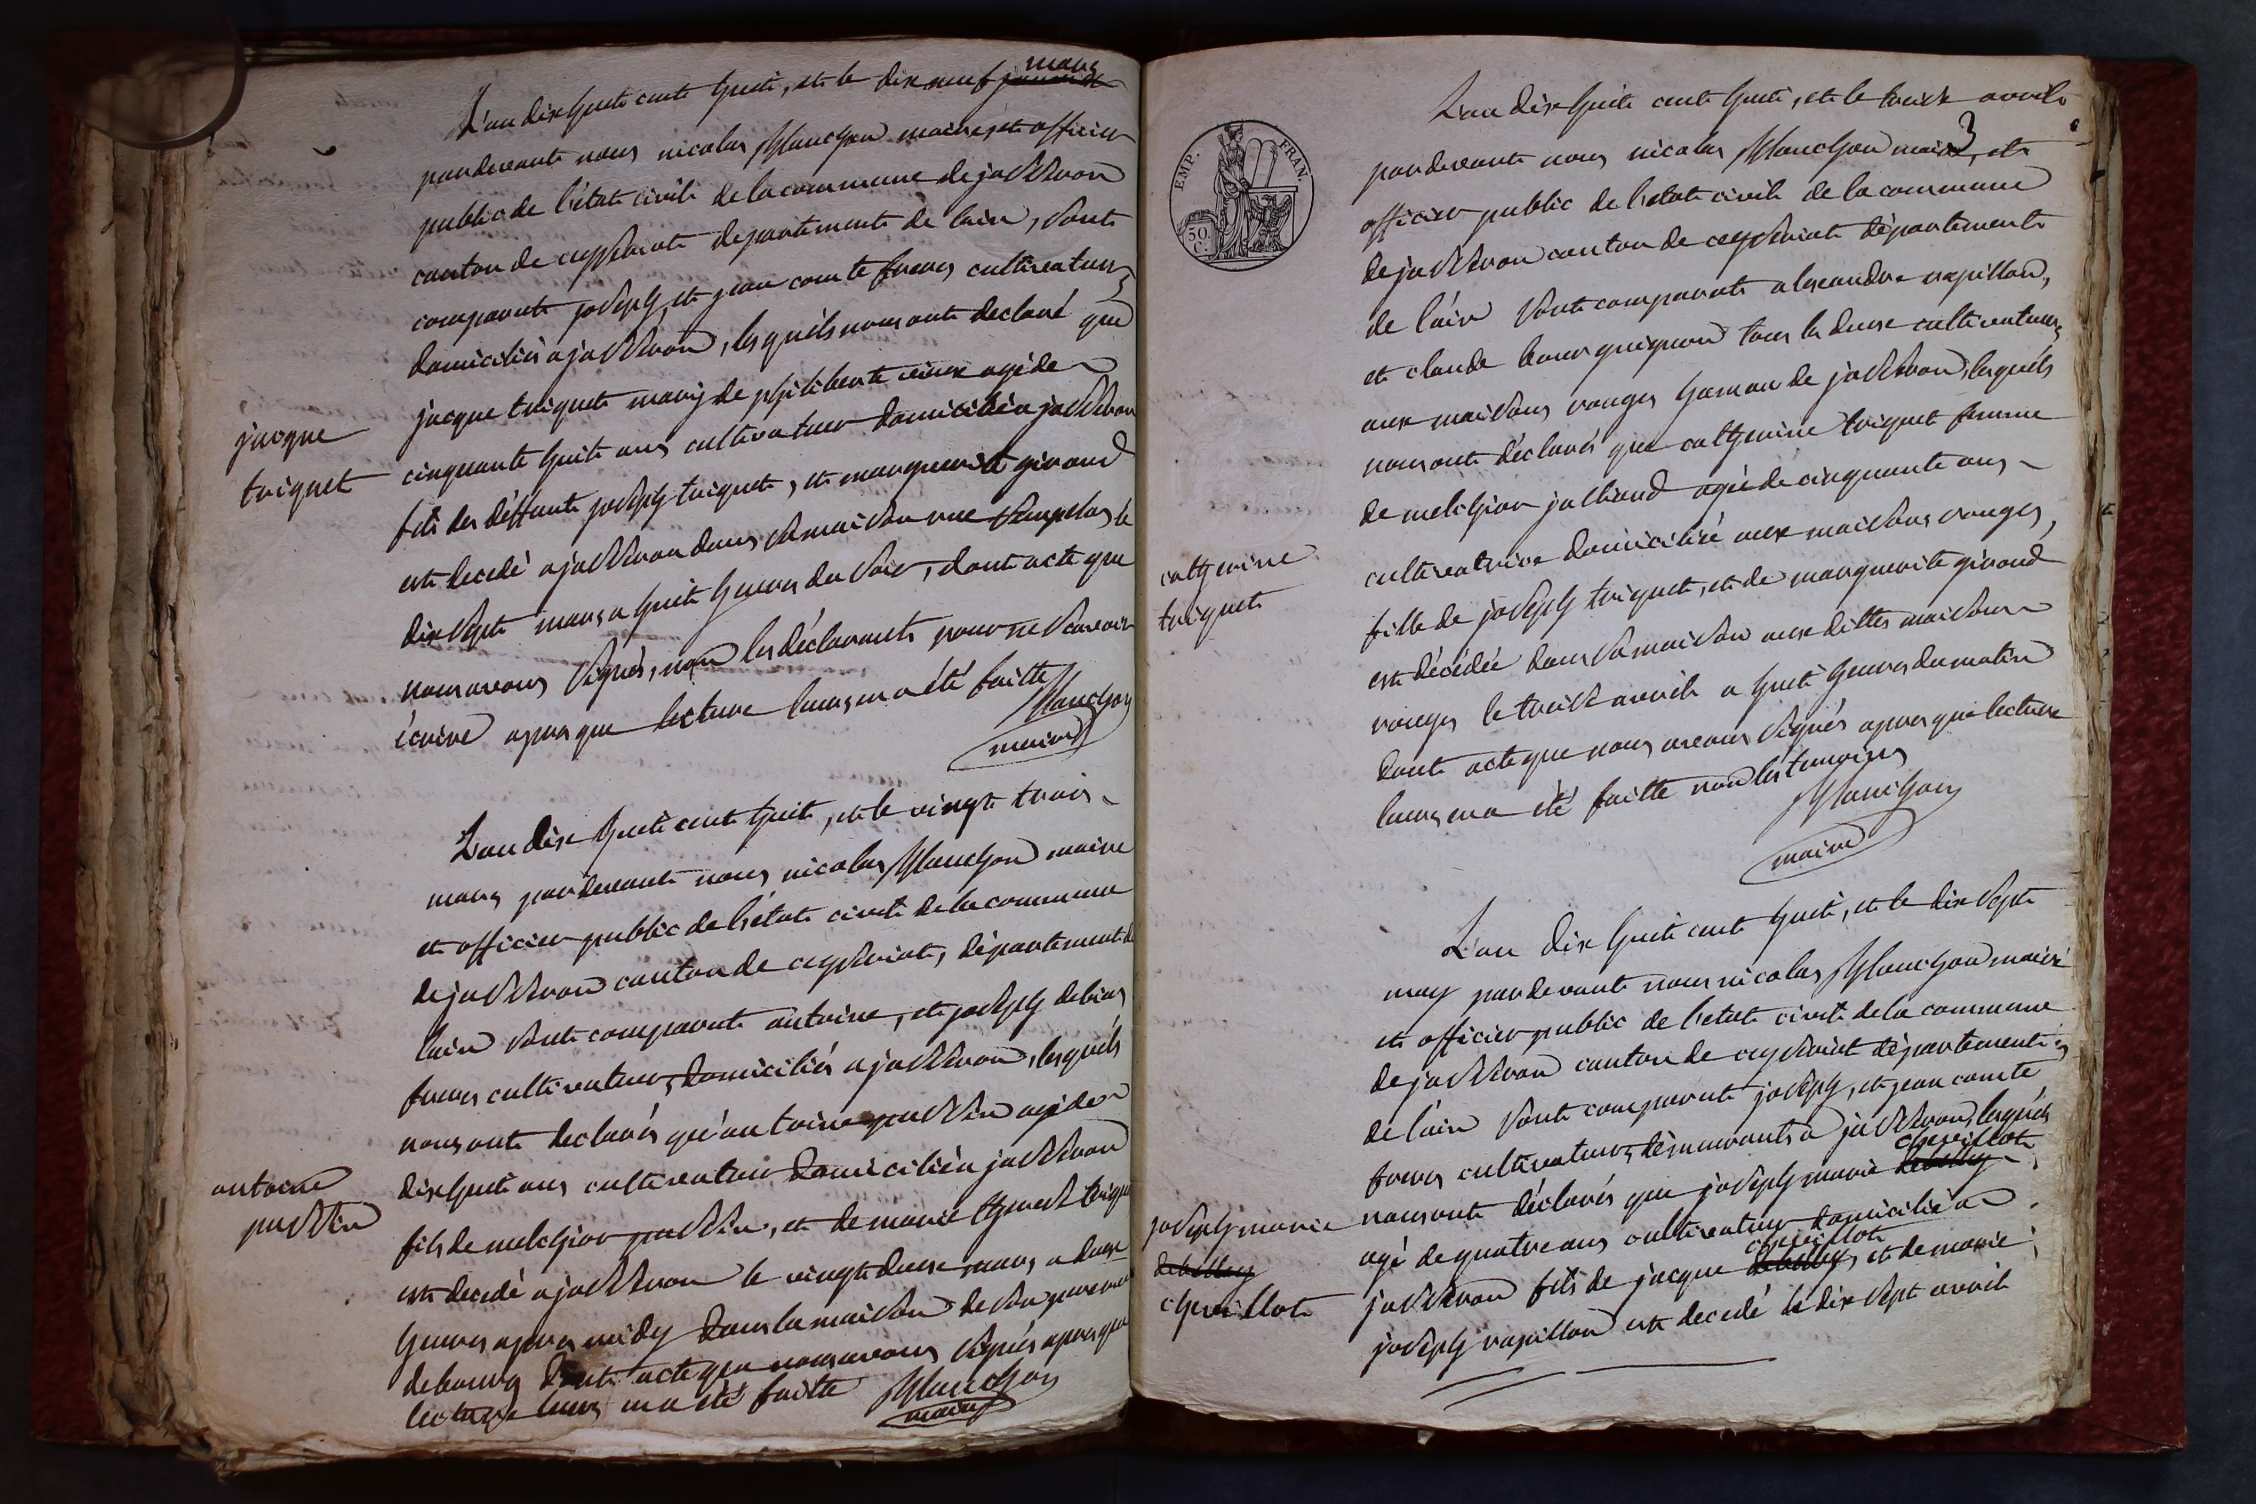 L'an dix huit cent huit, et le dix neuf janvier mars
pardevant nous nicolas Planchon maire, et officier
public de l'état civil de la commune de jasseron
canton de ceyseriat departement de lain, sont
comparut joseph, et jean comte freres cultivateurs
domiciliés a jasseron, lesquels nous ont declaré que
jacque triquet mary de philiberte agé de
cinquante huit ans cultivateur domicilié a jasseron
fils des deffunts joseph triquet, et marguerite giroud
est decedé a jasseron dans sa maison rue le
dix sept mars a huit heures du soir, dont acte que
nous avons signés, non les déclarants pour ne scavoir
écrire apres que lecture leurs en a été faitte
Planchon
maire
jacque
triquet
L'an dix huit cent huit, et le vingt trois
mars pardevant nous nicolas Planchon maire
et officier public de l'état civil de la commune
de jasseron canton de ceyseriat, département de
lain sont comparut antoine, et joseph debias
freres cultivateurs domiciliés a jasseron, lesquels
nous ont declarés qu'antoine pussin agé de
dix huit ans cultivateur domicilié a jasseron
fils de melchior pussin, et de marie triquet
est decedé a jasseron le vingt deux mars a deux
heures apres midy dans la maison de son pere rue
debourg dont acte que nous avons signés apres que
lecture leurs en a été faitte Planchon
maire
antoine
pussin
EMP. FRAN.
50.
C.
3
L'an dix huit cent huit, et le treize avril
pardevant nous nicolas Planchon maire, et
officier public de l'état civil de la commune
de jasseron canton de ceyseriat département
de l'ain sont comparut alexandre rapillon,
et claude bourguignon tous les deux cultivateurs
aux maisons rouges hamau de jasseron, lesquels
nous ont déclarés que catherine triquet femme
de melchior julliard agée de cinquante ans
cultivatrice domiciliée aux maisons rouges,
fille de joseph triquet, et de marguerite giroud
est décédée dans sa maison aux dittes maisons
rouges le treize avril a huit heures du matin
dont acte que nous avons signés apres que lecture
leurs en a été faitte non les temoins
Planchon
maire
catherine
triquet
L'an dix huit cent huit, et le dix sept
may pardevant nous nicolas Planchon maire
et officier public de l'état civil de la commune
de jasseron canton de ceyseriat département
de l'ain sont comparut joseph, et jean comte
freres cultivateurs demeurants a jasseron, lesquels
nous ont déclarés que joseph marie debelley chevillot
agé de quatre ans cultivateur domicilié a
jasseron fils de jacque debelley chevillot, et de marie
joseph rapillon est decedé le dix sept avril
joseph marie
debelley
chevillot